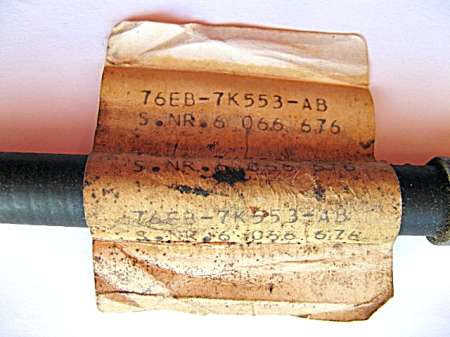 76EB-7K553-AB
S.NR.6 066 676
S.NR.6 066 676
76EB-7K553-AB
S.NR.6 066 676